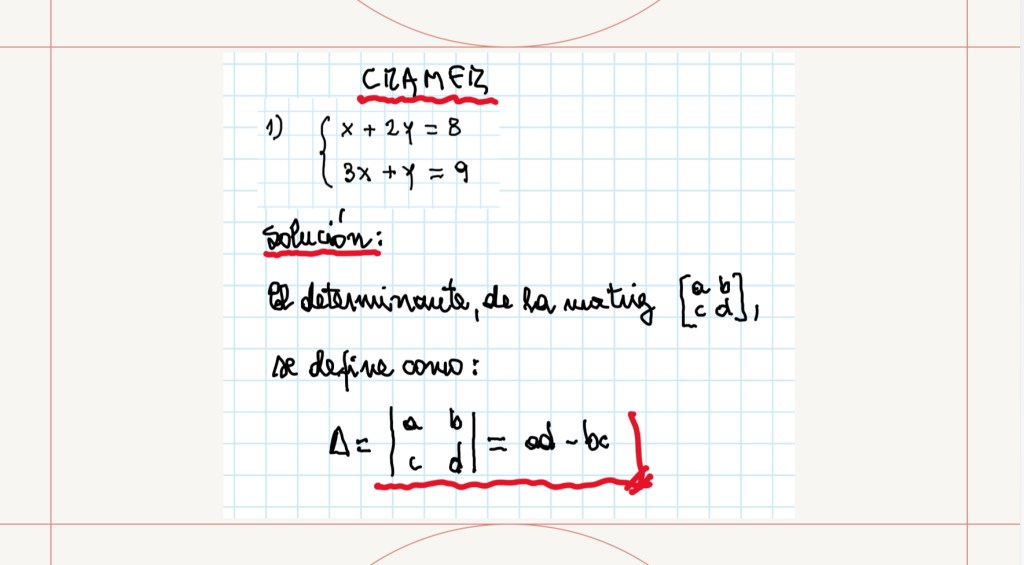 CRAMER
1) { x + 2y = 8
3x + y = 9
Solución:
El determinante, de la matriz [a b
c d],
se define como:
Δ = |a b
c d| = ad - bc